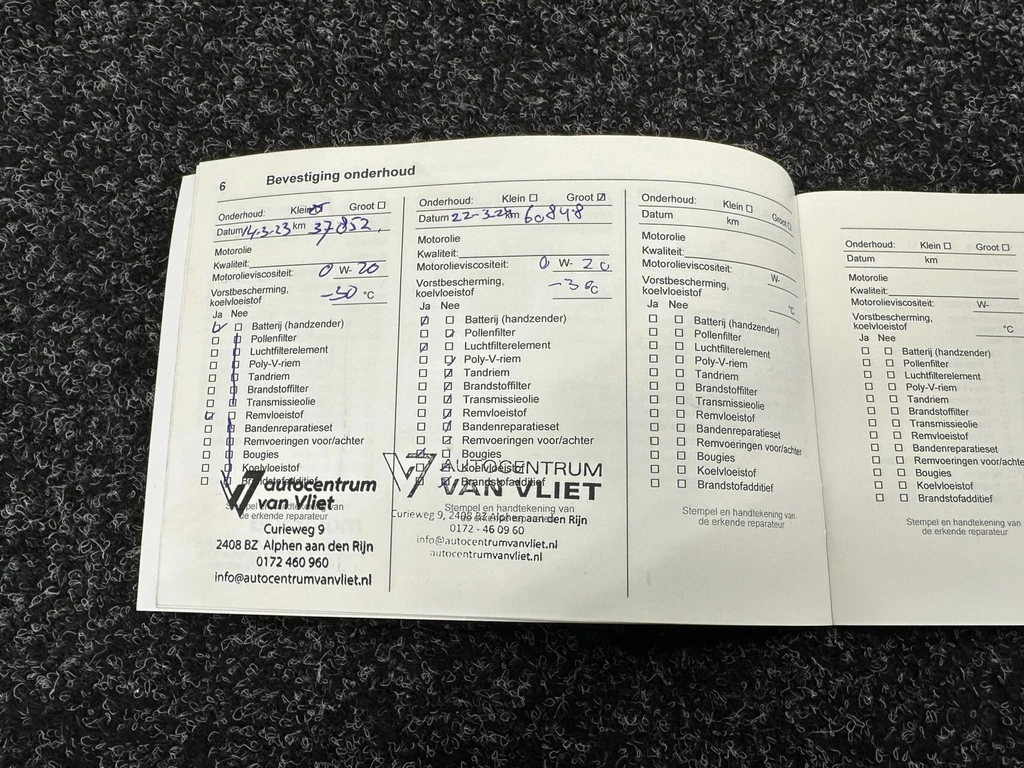 6 Bevestiging onderhoud
Onderhoud: Klein Groot
Datum 14-3-23 km 37852
Motorolie
Kwaliteit:
Motorolieviscositeit: 0 W- 20
Vorstbescherming,
koelvloeistof -30 °C
Ja Nee
Batterij (handzender)
Pollenfilter
Luchtfilterelement
Poly-V-riem
Tandriem
Brandstoffilter
Transmissieolie
Remvloeistof
Bandenreparatieset
Remvoeringen voor/achter
Bougies
Koelvloeistof
autocentrum
van Vliet
Curieweg 9
2408 BZ Alphen aan den Rijn
0172 460 960
info@autocentrumvanvliet.nl
Onderhoud: Klein Groot
Datum 22-3-24 km 60848
Motorolie
Kwaliteit:
Motorolieviscositeit: 0 W- 20
Vorstbescherming,
koelvloeistof -30 °C
Ja Nee
Batterij (handzender)
Pollenfilter
Luchtfilterelement
Poly-V-riem
Tandriem
Brandstoffilter
Transmissieolie
Remvloeistof
Bandenreparatieset
Remvoeringen voor/achter
Bougies
Koelvloeistof
Brandstofadditief
AUTOCENTRUM
VAN VLIET
Stempel en handtekening van
de erkende reparateur
Curieweg 9, 2408 BZ Alphen aan den Rijn
0172 - 46 09 60
info@autocentrumvanvliet.nl
autocentrumvanvliet.nl
Onderhoud: Klein Groot
Datum km
Motorolie
Kwaliteit:
Motorolieviscositeit: W-
Vorstbescherming,
koelvloeistof °C
Ja Nee
Batterij (handzender)
Pollenfilter
Luchtfilterelement
Poly-V-riem
Tandriem
Brandstoffilter
Transmissieolie
Remvloeistof
Bandenreparatieset
Remvoeringen voor/achter
Bougies
Koelvloeistof
Brandstofadditief
Stempel en handtekening van
de erkende reparateur
Onderhoud: Klein Groot
Datum km
Motorolie
Kwaliteit:
Motorolieviscositeit: W-
Vorstbescherming,
koelvloeistof °C
Ja Nee
Batterij (handzender)
Pollenfilter
Luchtfilterelement
Poly-V-riem
Tandriem
Brandstoffilter
Transmissieolie
Remvloeistof
Bandenreparatieset
Remvoeringen voor/achter
Bougies
Koelvloeistof
Brandstofadditief
Stempel en handtekening van
de erkende reparateur